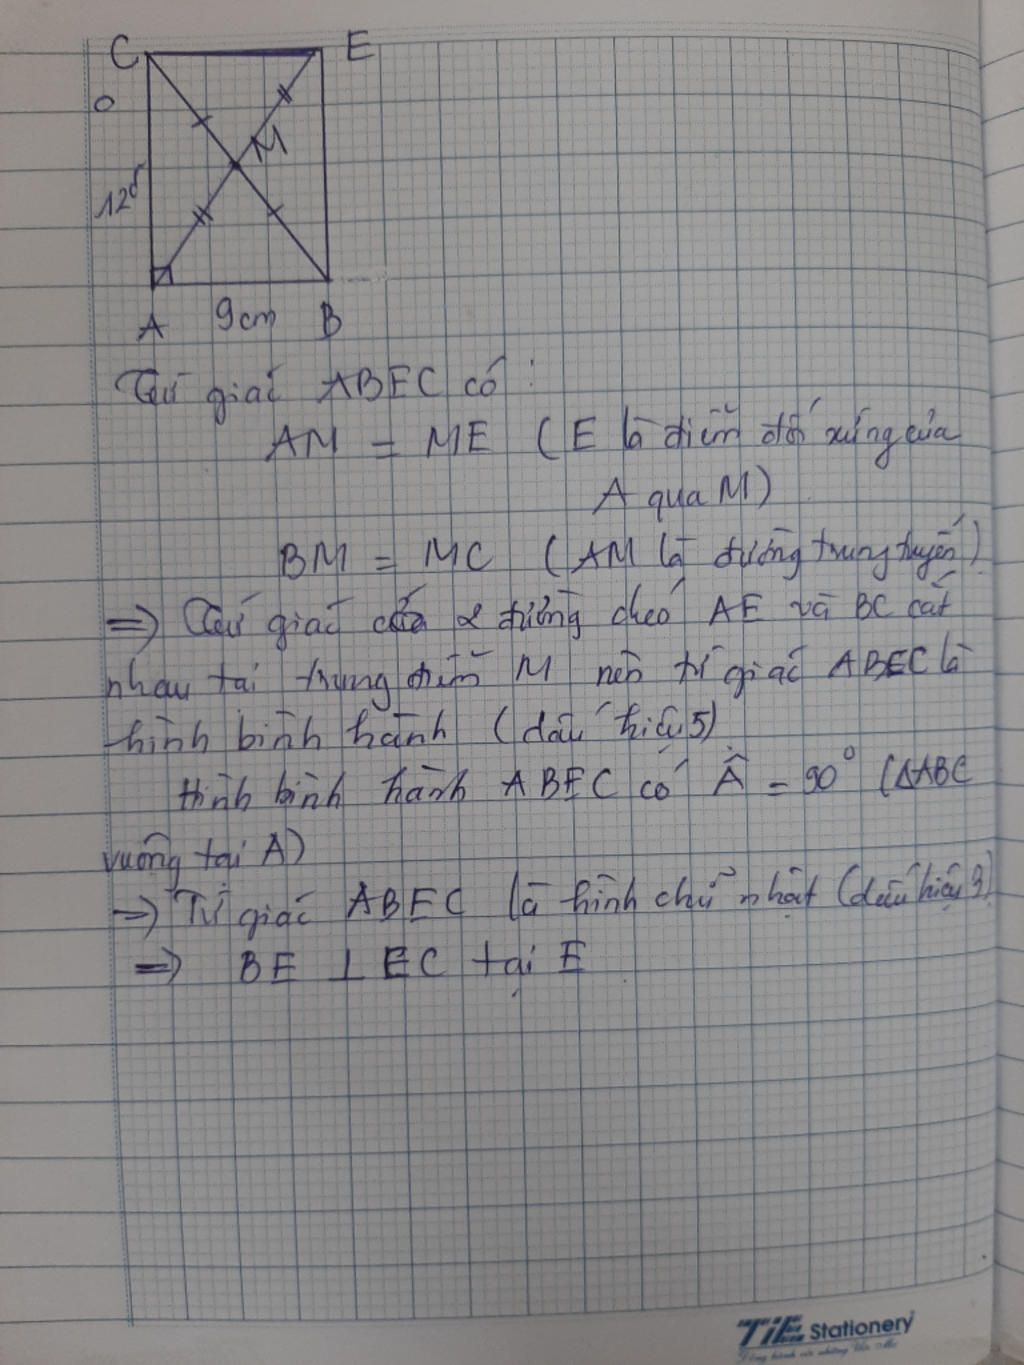 C E
M
12
A 9cm B
Tứ giác ABEC có :
AM = ME ( E là điểm đối xứng của
A qua M)
BM = MC ( AM là đường trung tuyến )
=> Tứ giác có 2 đường chéo AE và BC cắt
nhau tại trung điểm M nên tứ giác ABEC là
hình bình hành ( dấu hiệu 5)
Hình bình hành ABEC có Â = 90° (ΔABC
vuông tại A)
=> Tứ giác ABEC là hình chữ nhật (dấu hiệu 3)
=> BE ⊥ EC tại E
TiE Stationery